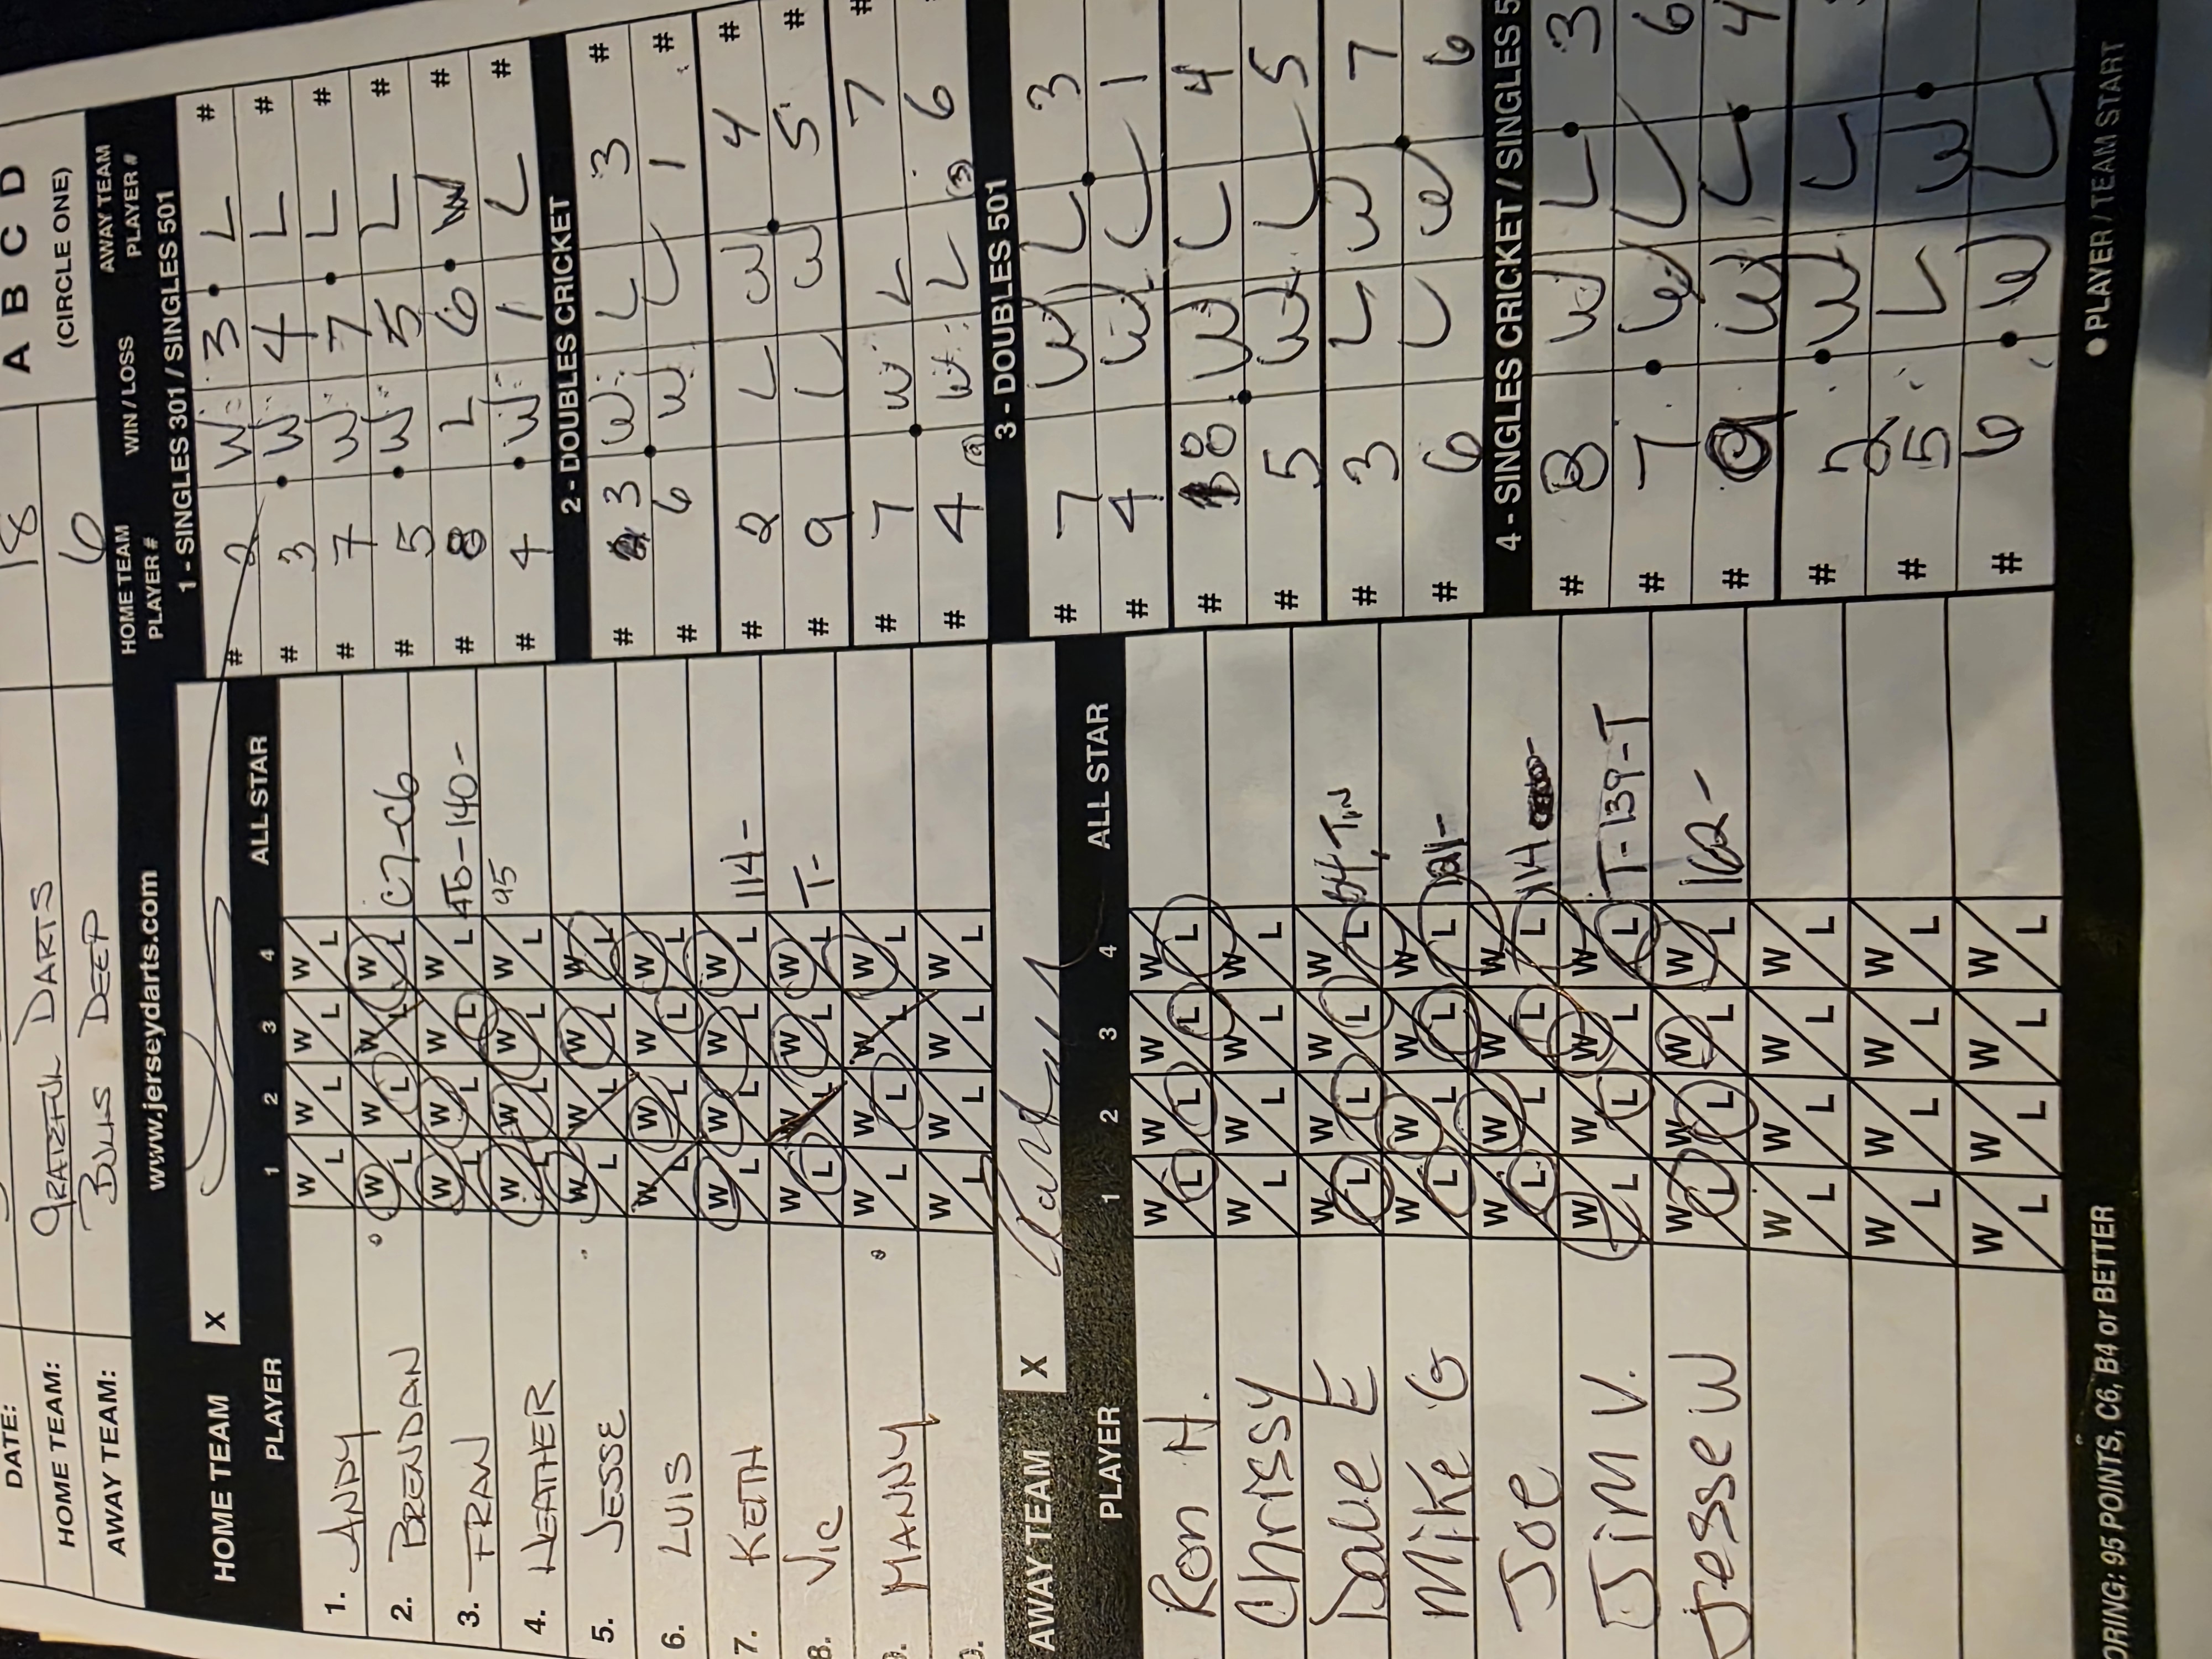 A B C D
(CIRCLE ONE)
DATE:
HOME TEAM: GRATEFUL DARTS 18
AWAY TEAM: BULLS DEEP 6
www.jerseydarts.com
HOME TEAM X
PLAYER 1 2 3 4 ALL STAR
1. ANDY W L W L W L W L
2. BRENDAN W L W L W L W L C7-C6
3. FRAN W L W L W L W L 140-
4. HEATHER W L W L W L W L 95
5. JESSE W L W L W L W L
6. LUIS W L W L W L W L
7. KEITH W L W L W L W L 114-
8. VIC W L W L W L W L T-
9. MANNY W L W L W L W L
0. W L W L W L W L
AWAY TEAM X
PLAYER 1 2 3 4 ALL STAR
Ron H. W L W L W L W L
Chrissy W L W L W L W L
Dave E W L W L W L W L
Mike G W L W L W L W L 121-
Joe W L W L W L W L
Jim V. W L W L W L W L T-139-T
Jesse W W L W L W L W L 162-
W L W L W L W L
W L W L W L W L
W L W L W L W L
ORING: 95 POINTS, C6, B4 or BETTER
HOME TEAM PLAYER # WIN / LOSS AWAY TEAM PLAYER #
1 - SINGLES 301 / SINGLES 501
# 2 W 3 L #
# 3 W 4 L #
# 7 W 7 L #
# 5 W 5 L #
# 8 L 6 W #
# 4 W 1 L #
2 - DOUBLES CRICKET
# 3 W L 3 #
# 6 W L 1 #
# 2 L W 4 #
# 9 L W 5 #
# 7 W L 7 #
# 4 W L (3) 6
3 - DOUBLES 501
# 7 W L 3
# 4 W L 1
# 8 W L 4
# 5 W L 5
# 3 L W 7
# 6 L W 6
4 - SINGLES CRICKET / SINGLES 5
# 8 W L 3
# 7 W L 6
# 9 W L 4
# 2 W L
# 5 L W
# 6 W L
● PLAYER / TEAM START